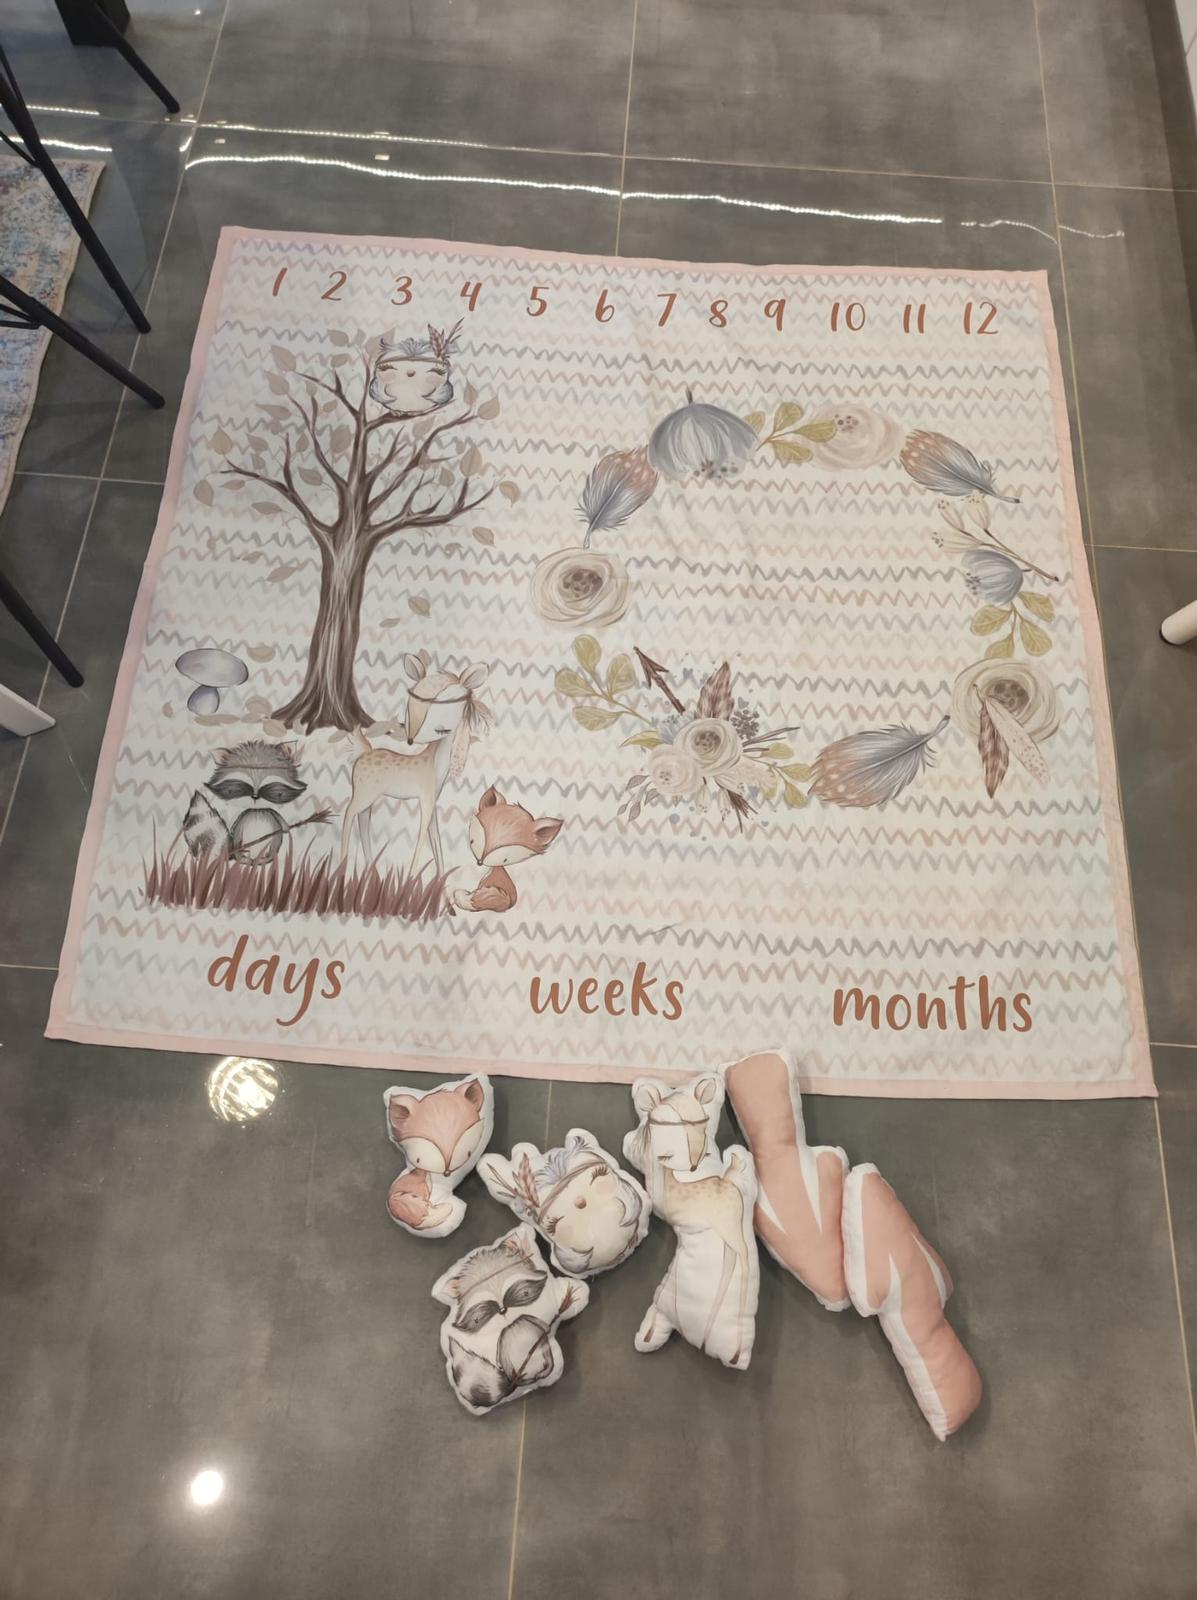 1 2 3 4 5 6 7 8 9 10 11 12
days weeks months